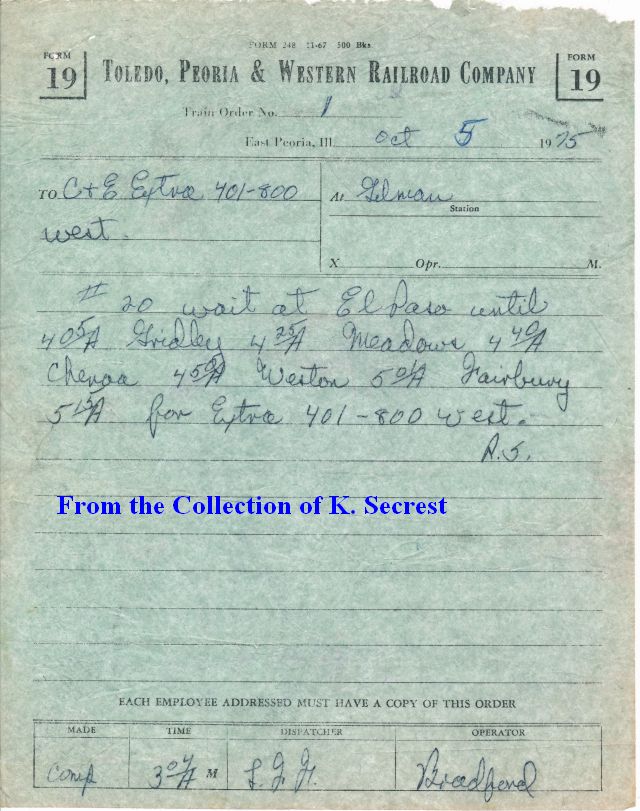 FORM 248 11-67 500 Bks
FORM 19
TOLEDO, PEORIA & WESTERN RAILROAD COMPANY
FORM 19
Train Order No. 1
East Peoria, Ill. Oct 5 1975
TO C+E Extra 401-800
west.
At Gilman
Station
X Opr. M.
# 20 wait at El Paso until
4 05 A Gridley 4 25 A Meadows 4 40 A
Chenoa 4 50 A Weston 5 01 A Fairbury
5 15 A for Extra 401-800 west.
EACH EMPLOYEE ADDRESSED MUST HAVE A COPY OF THIS ORDER
MADE TIME DISPATCHER OPERATOR
Comp 3 07 A M Bradford
From the Collection of K. Secrest